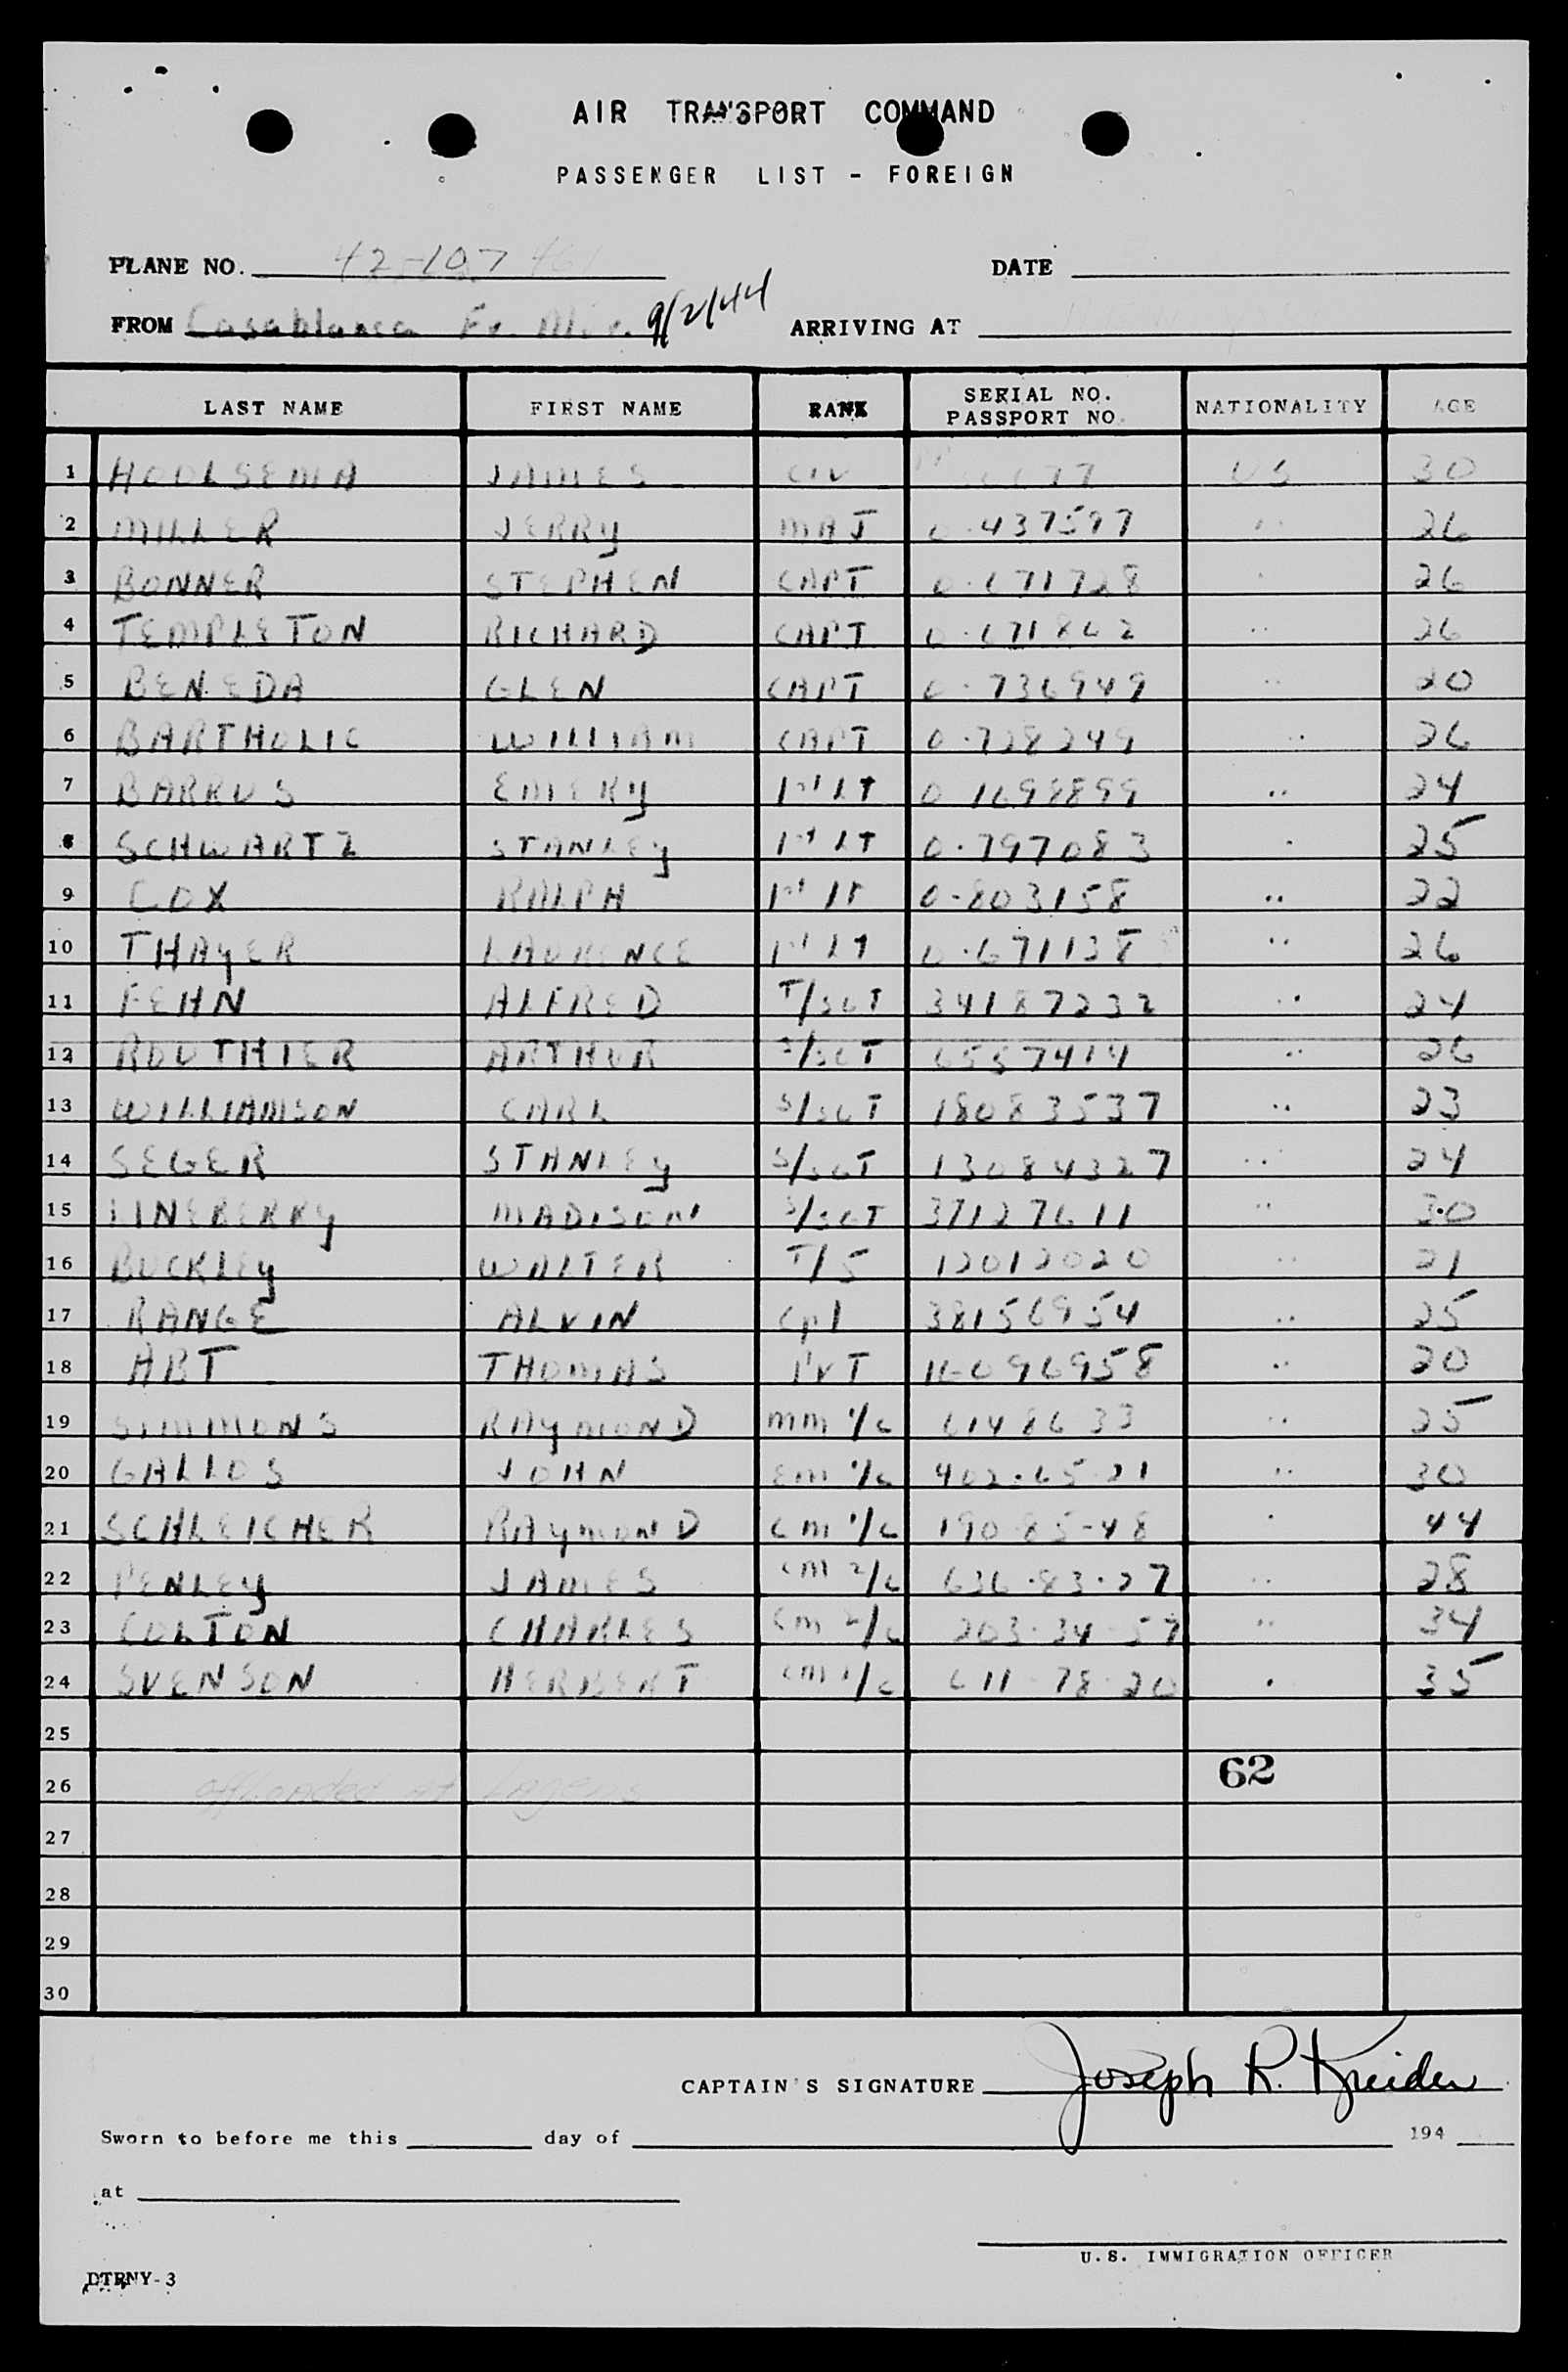 AIR TRANSPORT COMMAND
PASSENGER LIST - FOREIGN
PLANE NO. 42-107461 DATE
FROM Casablanca Fr. Mor. 9/2/44 ARRIVING AT
LAST NAME FIRST NAME RANK SERIAL NO. PASSPORT NO. NATIONALITY AGE
1 HOOLSEMA JAMES CIV US 30
2 MILLER JERRY MAJ 0-437597 " 26
3 BONNER STEPHEN CAPT 0-671728 " 26
4 TEMPLETON RICHARD CAPT 0-671862 " 26
5 BENEDA GLEN CAPT 0-736949 " 20
6 BARTHOLIC WILLIAM CAPT 0-728249 " 26
7 BARRUS EMERY 1st LT 0 1698899 " 24
8 SCHWARTZ STANLEY 1st LT 0-797083 " 25
9 COX RALPH 1st LT 0-803158 " 22
10 THAYER LAURENCE 1st LT 0-671138 " 26
11 FEHN ALFRED T/SGT 34187232 " 24
12 ROUTHIER ARTHUR S/SGT 6557414 " 26
13 WILLIAMSON CARL S/SGT 18083537 " 23
14 SEGER STANLEY S/SGT 13084327 " 24
15 LINEBERRY MADISON S/SGT 37127611 " 30
16 BUCKLEY WALTER T/5 12012020 " 21
17 RANGE ALVIN Cpl 38156954 " 25
18 ABT THOMAS PVT 16096958 " 20
19 SIMMONS RAYMOND MM 1/C 6148633 " 25
20 GALLOS JOHN EM 1/C 402-65-21 " 30
21 SCHLEICHER RAYMOND CM 1/C 190-85-48 " 44
22 PENLEY JAMES CM 2/C 636-83-27 " 28
23 COLTON CHARLES CM 2/C 203-34-57 " 34
24 SVENSON HERBERT CM 1/C 611-78-20 " 35
25
26 offloaded at Lagens 62
27
28
29
30
CAPTAIN'S SIGNATURE Joseph R. Kreider
Sworn to before me this day of 194
at
U.S. IMMIGRATION OFFICER
DTRNY-3